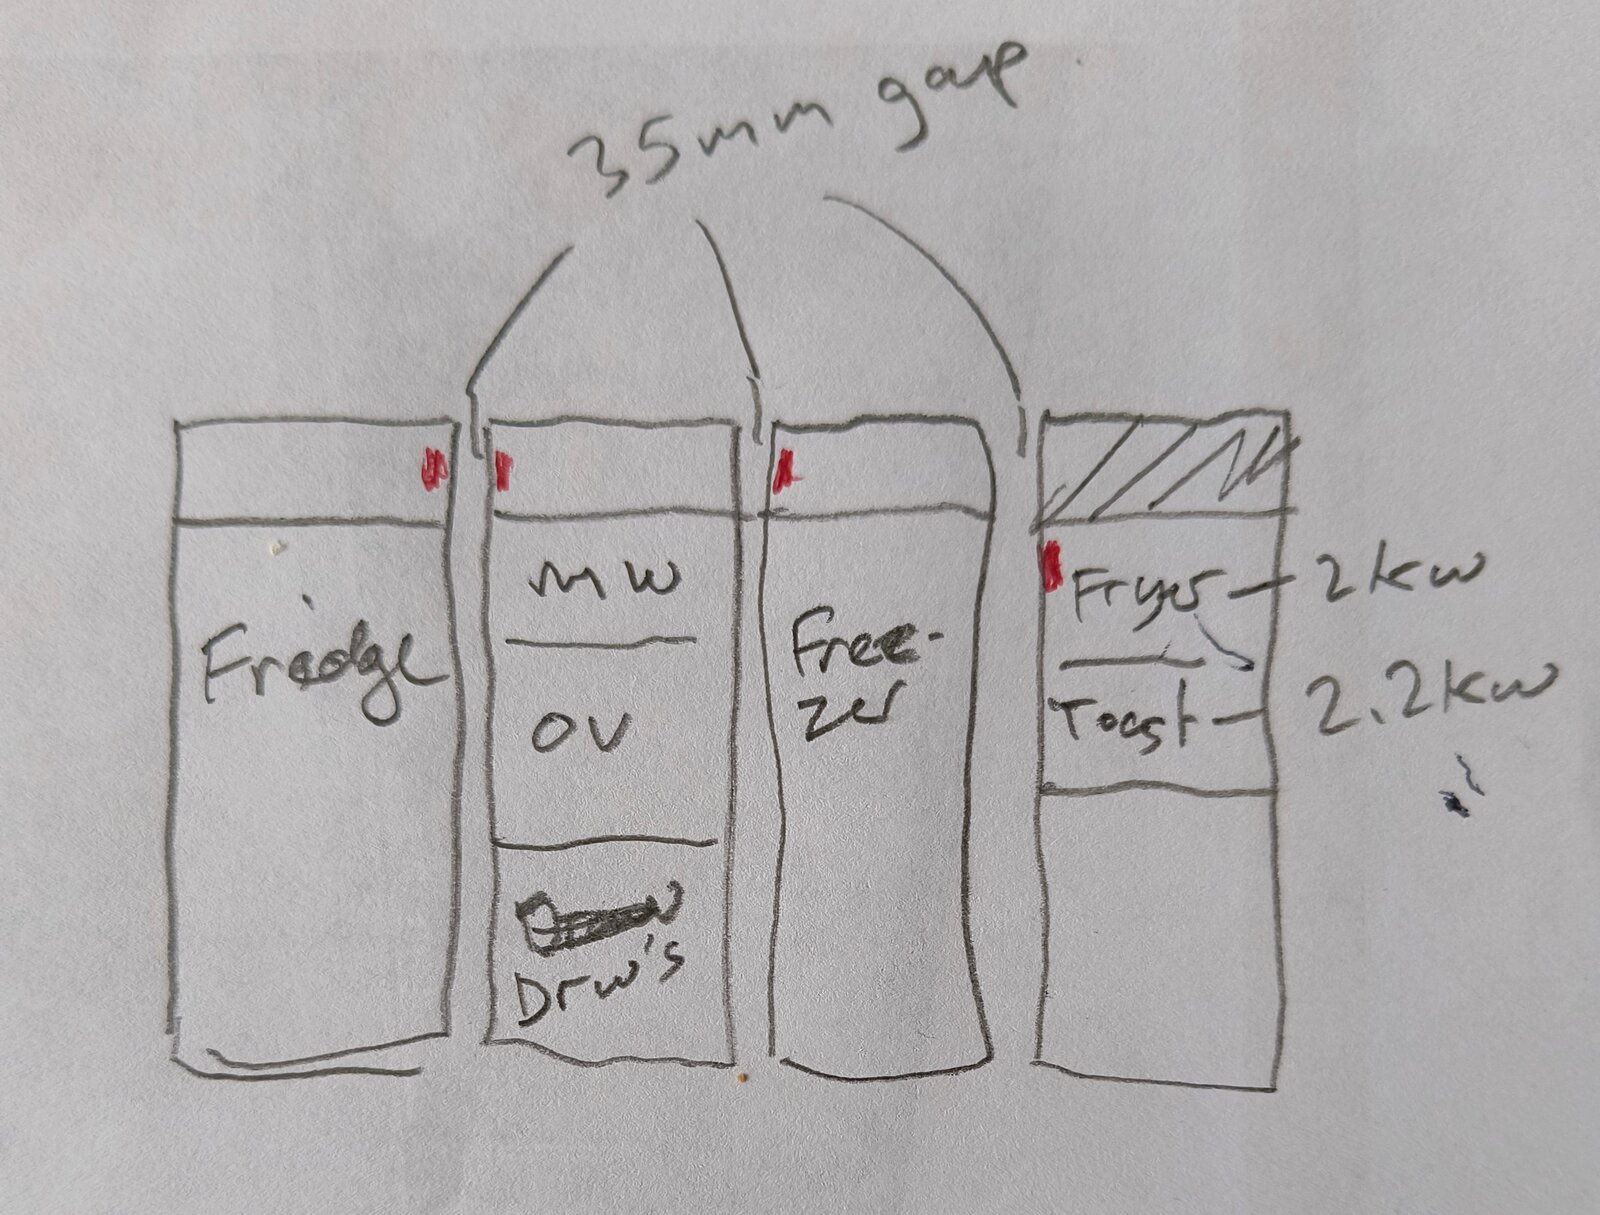 35mm gap
Fridge
mw
ov
Drw's
Free-
zer
Fryer - 2kw
Toast - 2.2kw